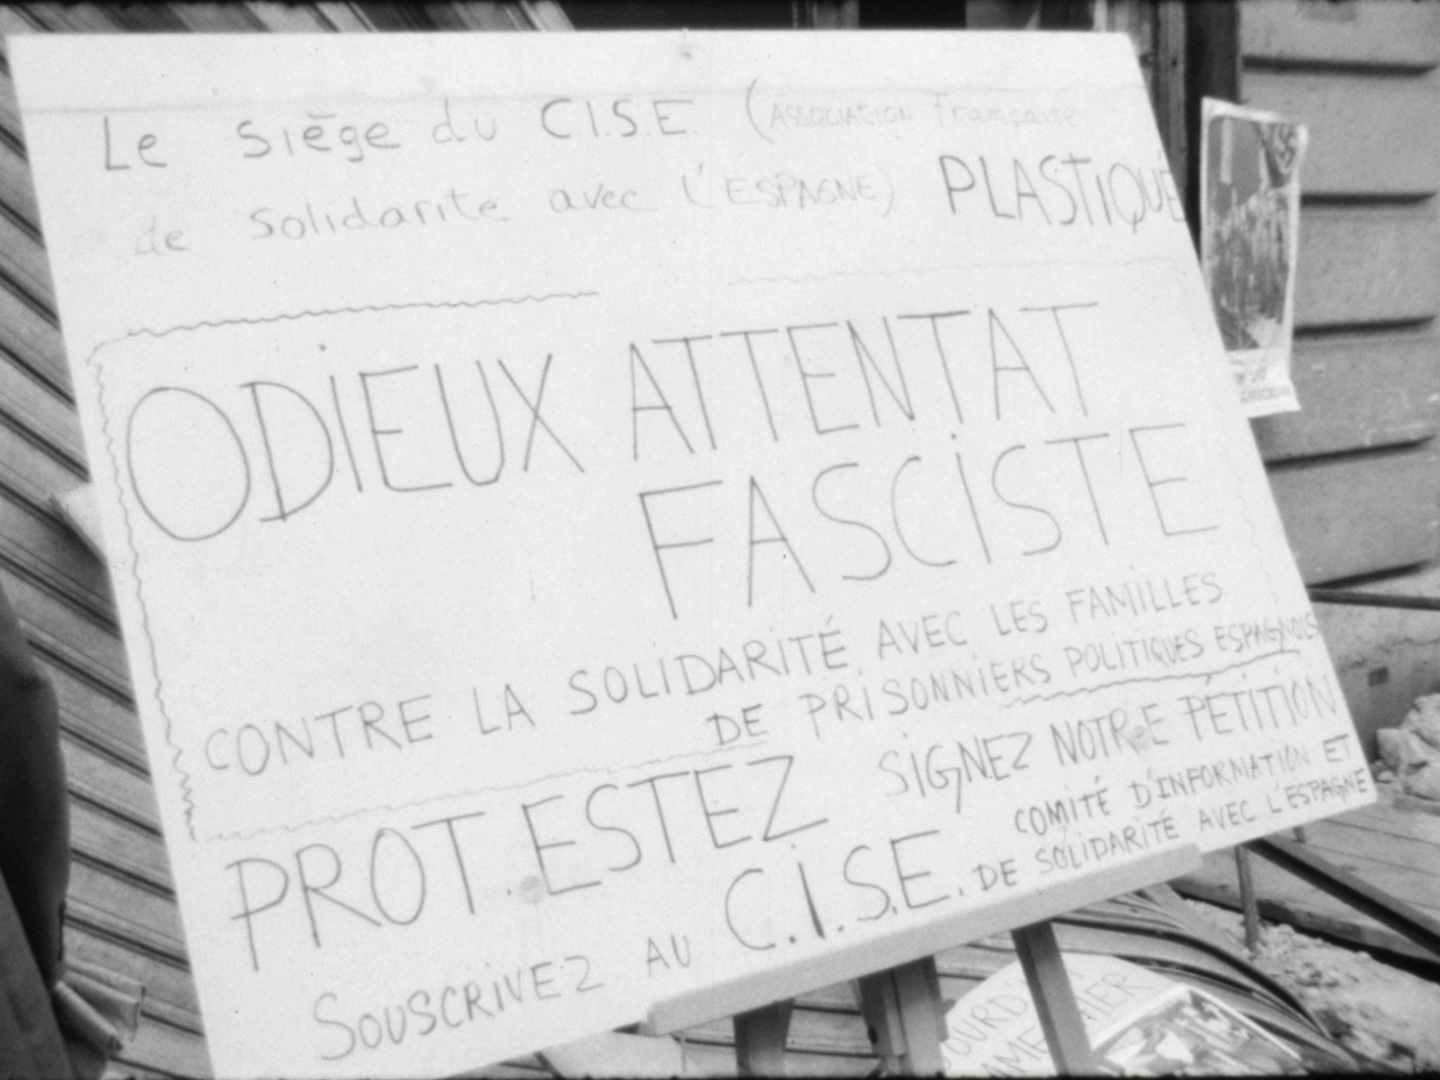 Le Siège du C.I.S.E. (ASSOCIATION Française
de Solidarite avec l'ESPAGNE) PLASTIQUÉ
ODIEUX ATTENTAT
FASCISTE
CONTRE LA SOLIDARITÉ AVEC LES FAMILLES
DE PRISONNIERS POLITIQUES ESPAGNOLS
PROTESTEZ SIGNEZ NOTRE PÉTITION
SOUSCRIVEZ AU C.I.S.E. COMITÉ D'INFORMATION ET
DE SOLIDARITÉ AVEC L'ESPAGNE